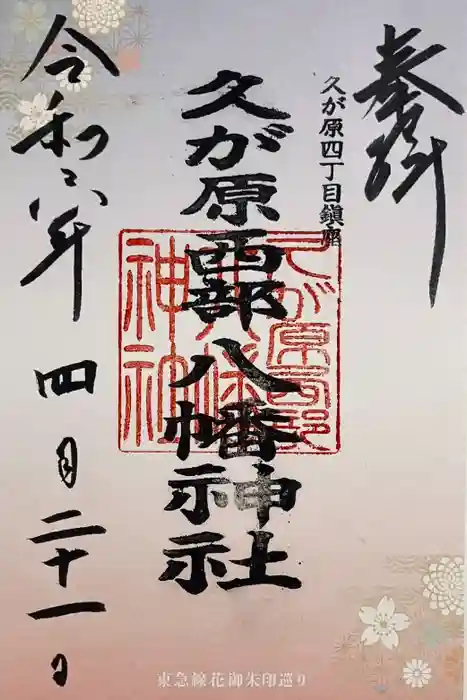 奉拝
久が原四丁目鎮座
久が原西部八幡神社
久が原西部八幡神社
令和六年 四月二十一日
東急線花御朱印巡り